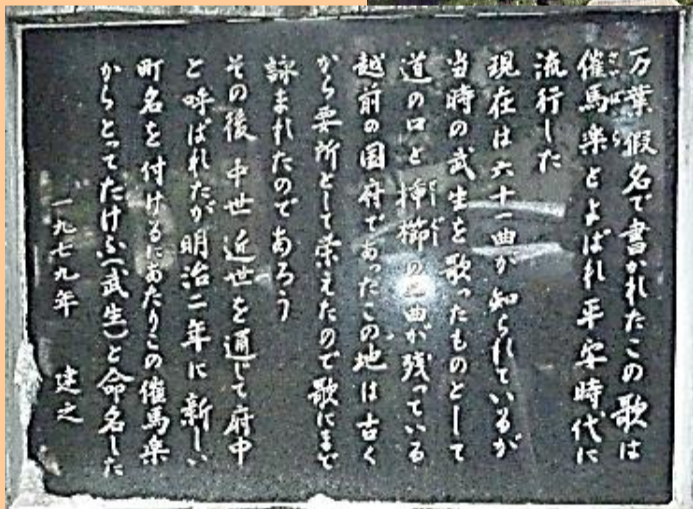 万葉假名で書かれたこの歌は
催馬楽とよばれ平安時代に
さいばら
流行した
現在は六十一曲が知られているが
当時の武生を歌ったものとして
道の口と挿櫛の曲が残っている
越前の国府であったこの地は古く
から要所として栄えたので歌にまで
詠まれたのであろう
その後 中世 近世を通じて府中
と呼ばれたが明治二年に新しい
町名を付けるにあたりこの催馬楽
からとってたけふ(武生)と命名した
一九七九年 建之